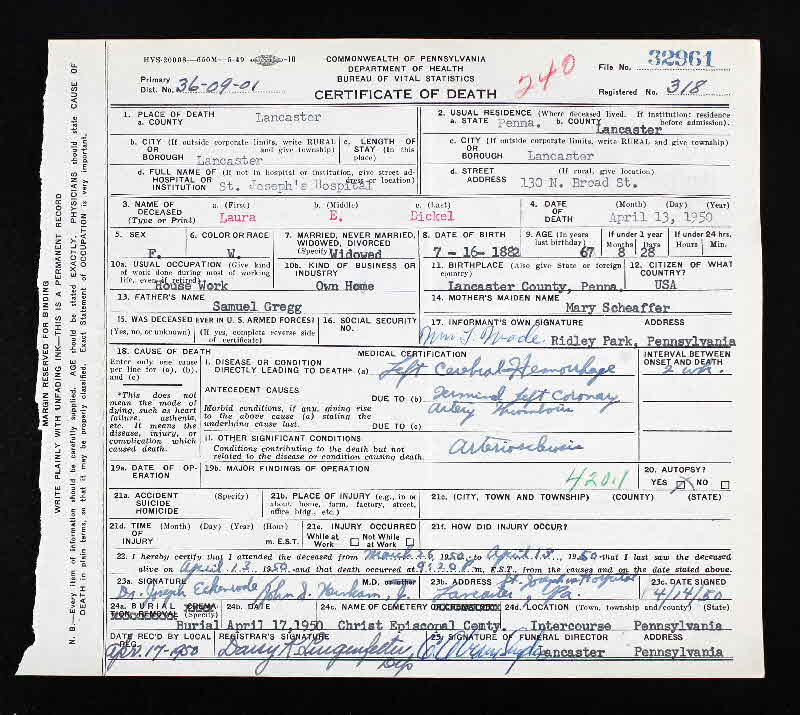 HVS-20008—650M—5-49 -10
COMMONWEALTH OF PENNSYLVANIA
DEPARTMENT OF HEALTH
BUREAU OF VITAL STATISTICS
CERTIFICATE OF DEATH
Primary
Dist. No. 36-09-01
240
File No. 32961
Registered No. 318
MARGIN RESERVED FOR BINDING
WRITE PLAINLY WITH UNFADING INK—THIS IS A PERMANENT RECORD
N. B.—Every item of information should be carefully supplied. AGE should be stated EXACTLY. PHYSICIANS should state CAUSE OF
DEATH in plain terms, so that it may be properly classified. Exact Statement of OCCUPATION is very important.
1. PLACE OF DEATH
a. COUNTY Lancaster
2. USUAL RESIDENCE (Where deceased lived. If institution: residence before admission).
a. STATE Penna. b. COUNTY Lancaster
b. CITY (If outside corporate limits, write RURAL
OR and give township)
BOROUGH Lancaster
c. LENGTH OF
STAY (In this
place)
c. CITY (If outside corporate limits, write RURAL and give township)
OR
BOROUGH Lancaster
d. FULL NAME OF (If not in hospital or institution, give street address or location)
HOSPITAL OR
INSTITUTION St. Joseph's Hospital
d. STREET (If rural, give location)
ADDRESS 130 N. Broad St.
3. NAME OF DECEASED (Type or Print)
a. (First) b. (Middle) c. (Last)
Laura E. Dickel
4. DATE OF DEATH (Month) (Day) (Year)
April 13, 1950
5. SEX
F.
6. COLOR OR RACE
W.
7. MARRIED, NEVER MARRIED,
WIDOWED, DIVORCED
(Specify) Widowed
8. DATE OF BIRTH
7-16-1882
9. AGE (In years
last birthday)
67
If under 1 year
Months Days
8 28
If under 24 hrs.
Hours Min.
10a. USUAL OCCUPATION (Give kind
of work done during most of working
life, even if retired)
House Work
10b. KIND OF BUSINESS OR
INDUSTRY
Own Home
11. BIRTHPLACE (Also give State or foreign
country)
Lancaster County, Penna.
12. CITIZEN OF WHAT
COUNTRY?
USA
13. FATHER'S NAME
Samuel Gregg
14. MOTHER'S MAIDEN NAME
Mary Scheaffer
15. WAS DECEASED EVER IN U.S. ARMED FORCES?
(Yes, no, or unknown) (If yes, complete reverse side
of certificate)
16. SOCIAL SECURITY
NO.
17. INFORMANT'S OWN SIGNATURE ADDRESS
Ridley Park, Pennsylvania
18. CAUSE OF DEATH
Enter only one cause
per line for (a), (b),
and (c)
*This does not
mean the mode of
dying, such as heart
failure, asthenia,
etc. It means the
disease, injury, or
complication which
caused death.
MEDICAL CERTIFICATION
INTERVAL BETWEEN
ONSET AND DEATH
I. DISEASE OR CONDITION
DIRECTLY LEADING TO DEATH* (a) Left Cerebral Hemorrhage
ANTECEDENT CAUSES
Morbid conditions, if any, giving rise
to the above cause (a) stating the
underlying cause last.
DUE TO (b) Terminal Left Coronary
Artery Thrombosis
DUE TO (c)
II. OTHER SIGNIFICANT CONDITIONS
Conditions contributing to the death but not
related to the disease or condition causing death.
Arteriosclerosis
19a. DATE OF OPERATION
19b. MAJOR FINDINGS OF OPERATION
4201
20. AUTOPSY?
YES NO
21a. ACCIDENT (Specify)
SUICIDE
HOMICIDE
21b. PLACE OF INJURY (e.g., in or
about home, farm, factory, street,
office bldg., etc.)
21c. (CITY, TOWN AND TOWNSHIP) (COUNTY) (STATE)
21d. TIME (Month) (Day) (Year) (Hour)
OF
INJURY m. E.S.T.
21e. INJURY OCCURRED
While at Work Not While at Work
21f. HOW DID INJURY OCCUR?
22. I hereby certify that I attended the deceased from March 26, 1950, to April 13, 1950, that I last saw the deceased
alive on April 13, 1950, and that death occurred at 9:20 P m., E.S.T., from the causes and on the date stated above.
23a. SIGNATURE M.D. or other
Dr. Joseph
23b. ADDRESS St. Joseph's Hospital
Lancaster, Pa.
23c. DATE SIGNED
4/14/50
24a. BURIAL, CREMATION, REMOVAL (Specify)
Burial
24b. DATE
April 17, 1950
24c. NAME OF CEMETERY OR CREMATORY
Christ Episcopal Cemty.
24d. LOCATION (Town, township and county) (State)
Intercourse Pennsylvania
DATE REC'D BY LOCAL
REG.
Apr. 17-1950
REGISTRAR'S SIGNATURE
25. SIGNATURE OF FUNERAL DIRECTOR ADDRESS
Lancaster Pennsylvania